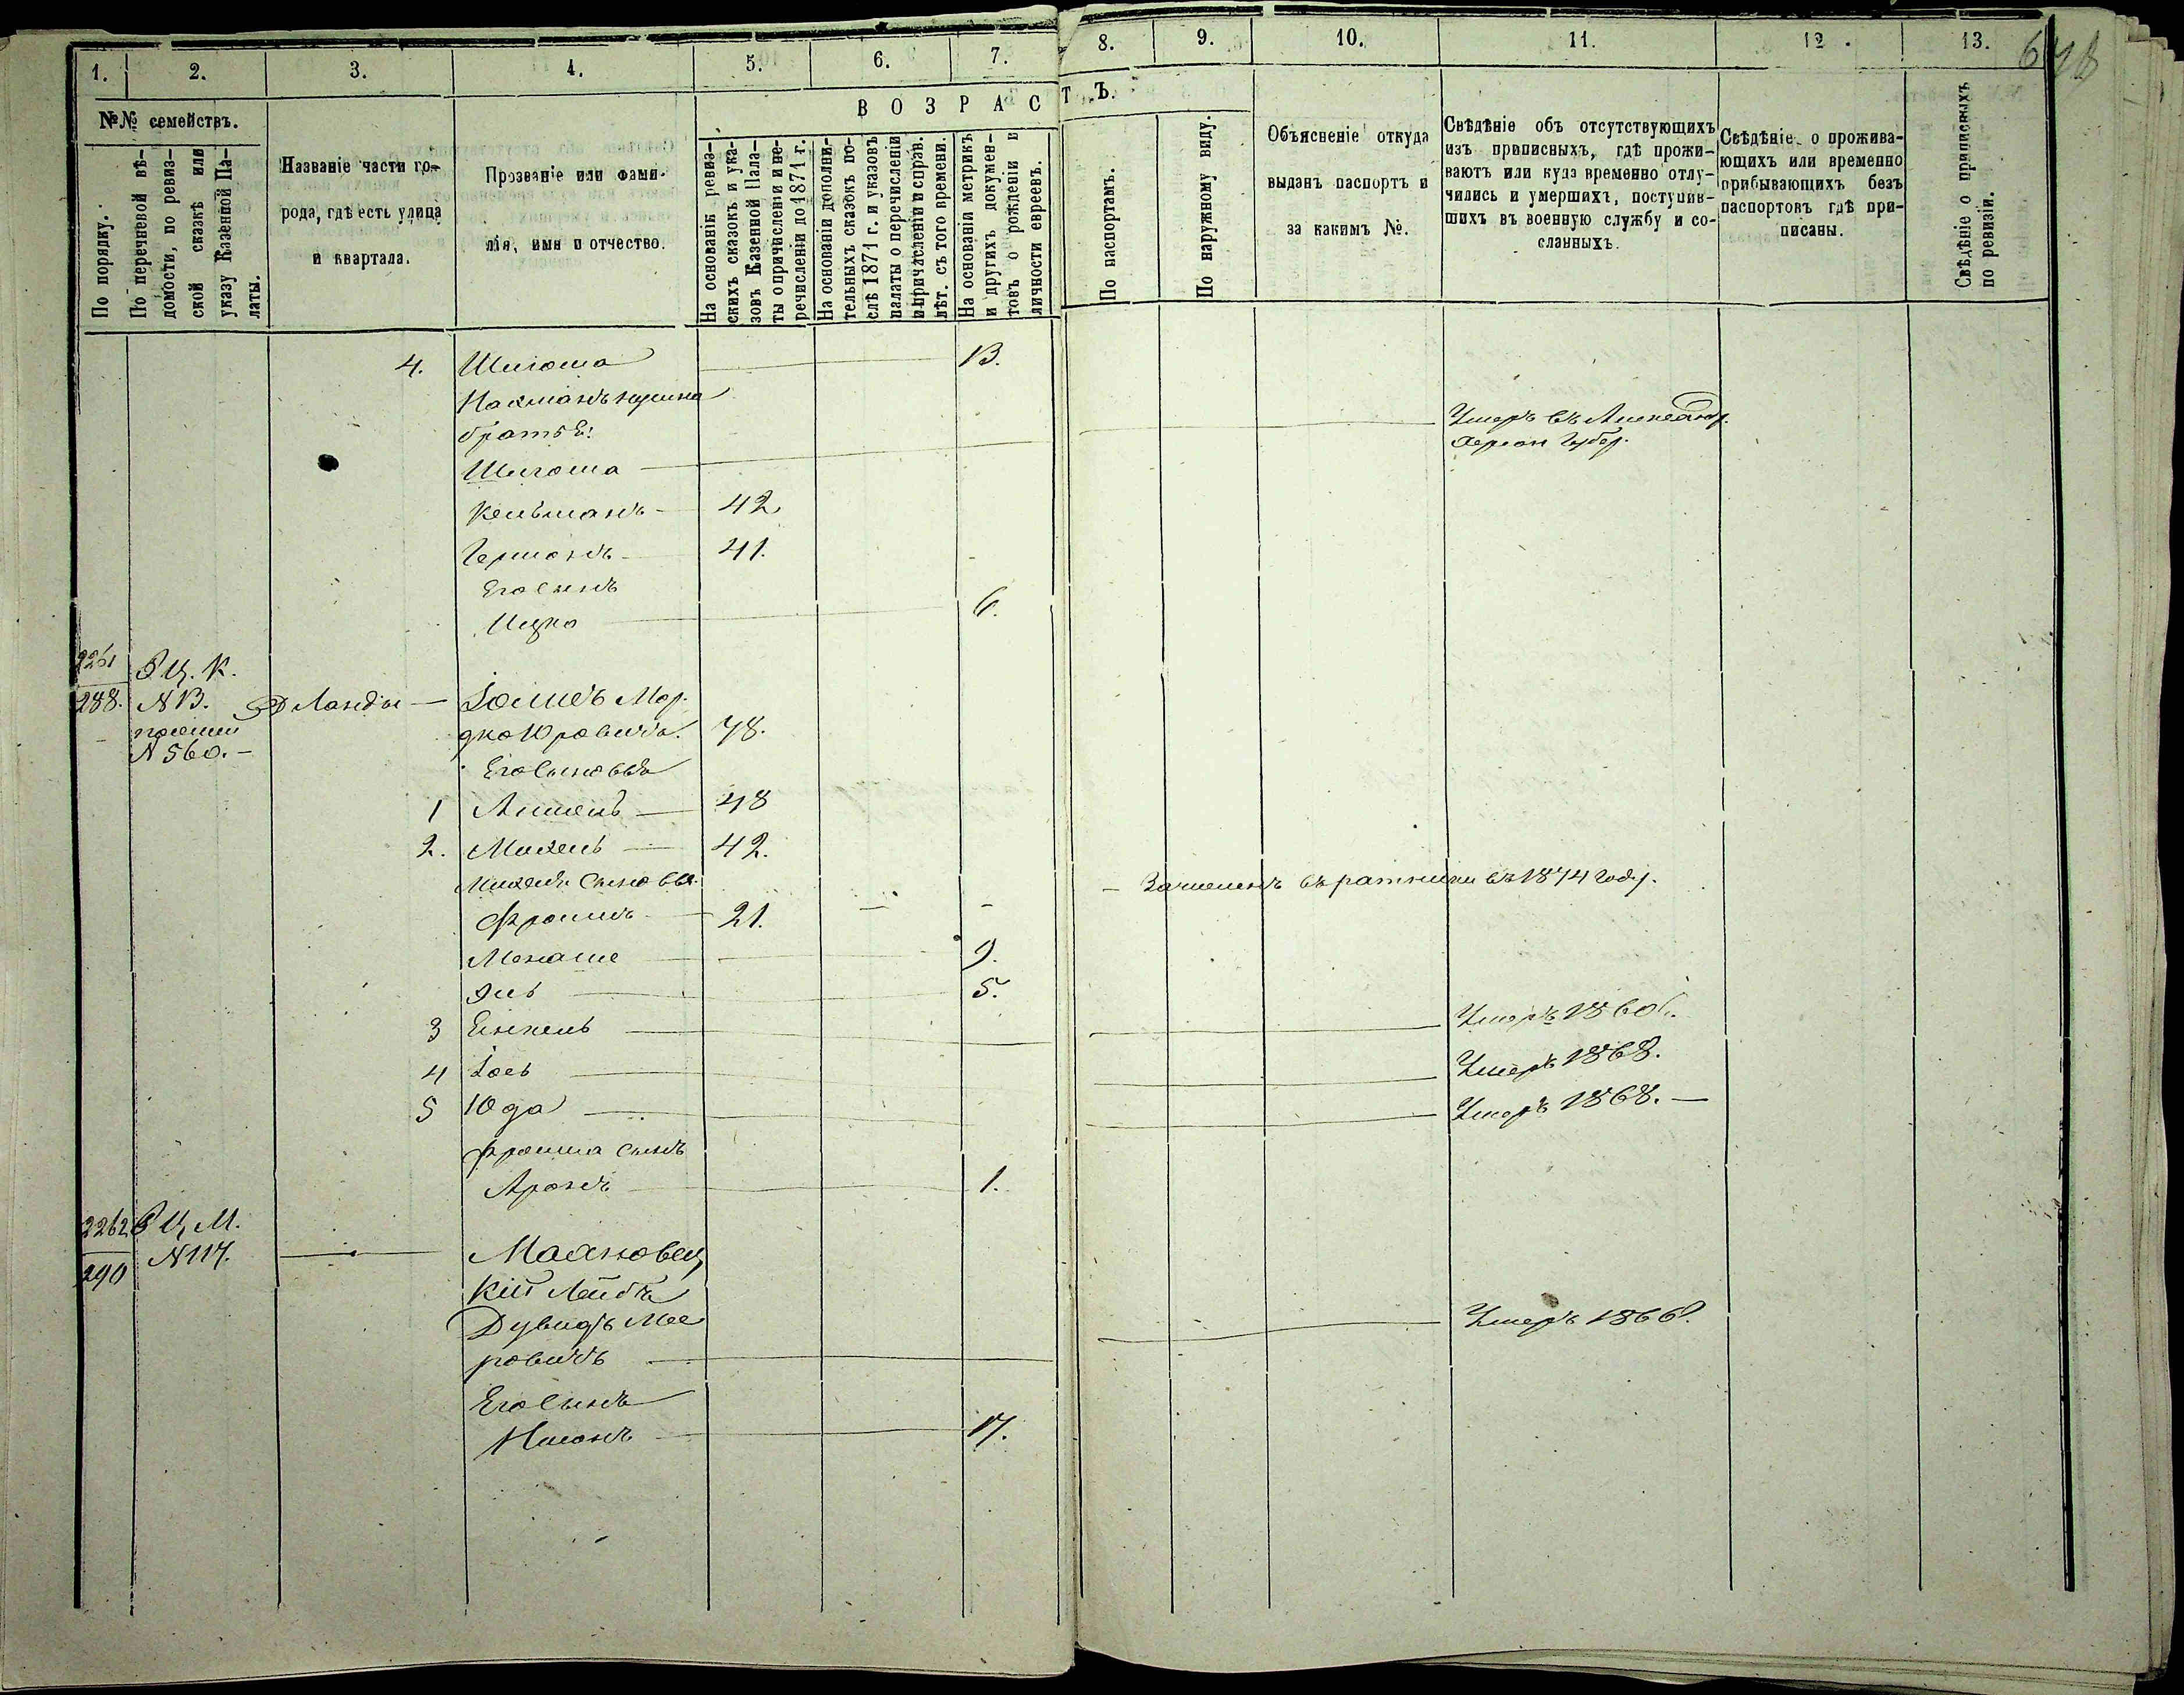 1. 2. 3. 4. 5. 6. 7. 8. 9. 10. 11. 12. 13.
648
№№ семействъ.
По порядку.
По перечневой вѣ-
домости, по ревиз-
ской сказкѣ или
указу Казенной Па-
латы.
Названіе части го-
рода, гдѣ есть улица
и квартала.
Прозваніе или фами-
лія, имя и отчество.
ВОЗРАСТЪ.
На основаніи ревиз-
скихъ сказокъ и ука-
зовъ Казенной Пала-
ты о причисленіи и пе-
речисленіи до 1871 г.
На основаніи дополни-
тельныхъ сказокъ по-
слѣ 1871 г. и указовъ
палаты о перечисленіи
и причисленіи и справ.
лѣт. съ того времени.
На основаніи метрикъ
и другихъ докумен-
товъ о рожденіи и
личности евреевъ.
По паспортамъ.
По наружному виду.
Объясненіе откуда
выданъ паспортъ и
за какимъ №.
Свѣдѣніе объ отсутствующихъ
изъ приписныхъ, гдѣ прожи-
ваютъ или куда временно отлу-
чились и умершихъ, поступив-
шихъ въ военную службу и со-
сланныхъ.
Свѣдѣніе о прожива-
ющихъ или временно
прибывающихъ безъ
паспортовъ гдѣ при-
писаны.
Свѣдѣніе о приписныхъ
по ревизіи.
4. Шлиома 13.
братья:
Умеръ въ
Херсон Губер.
Шлиома
Кельманъ 42
Гершонъ 41.
Его сынъ
Ицко 6.
2261 Р Ц. К.
288. N 13. Ланды Іойшев Мор.
дко Юровичъ. 78.
N 560.
Его сыновья
1 Аншель 48
2. Михель 42.
Михеля сыновья.
Фроимъ 21. Зачисленъ въ ратники въ 1874 году.
Монаше 9.
Эль 5.
3 Енкель Умеръ 1860 г.
4 Іось Умеръ 1868.
5 Юда Умеръ 1868.
Фроима сынъ
Аронъ 1.
2262 Р Ц М.
290 N 117. Махновец
кій Лейба
Дувидъ Мее
ровичъ Умеръ 1866 г.
Его сынъ
Нисонъ 17.